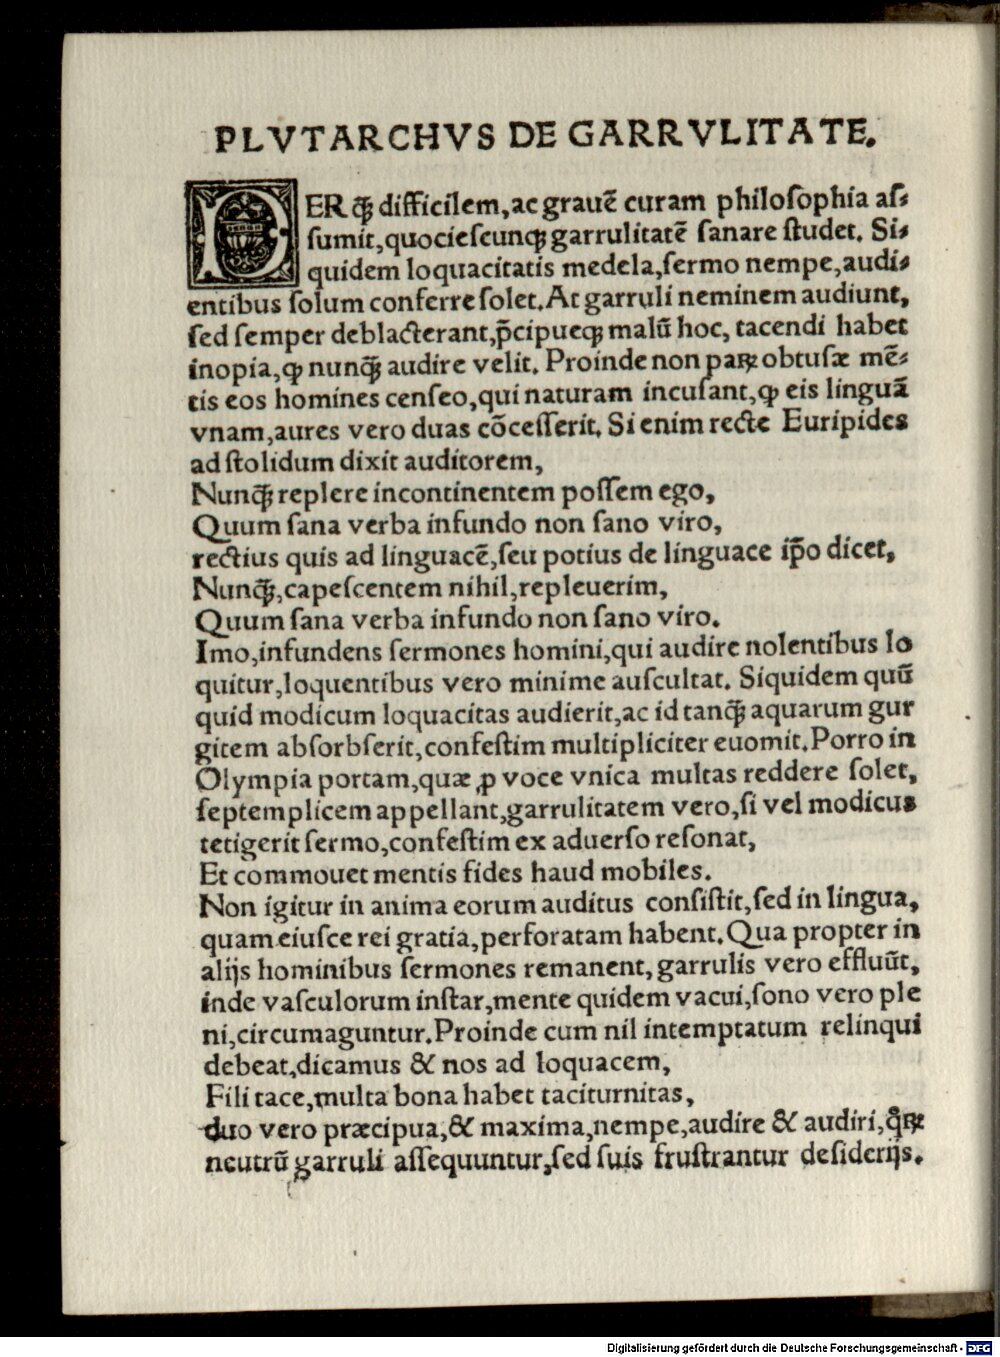 PLVTARCHVS DE GARRVLITATE.
PER ꝙ̃ difficilem, ac grauẽ curam philoſophia aſ⸗
ſumit, quocieſcunqꝫ garrulitatẽ ſanare ſtudet. Si⸗
quidem loquacitatis medela, ſermo nempe, audi⸗
entibus ſolum conferre ſolet. At garruli neminem audiunt,
ſed ſemper deblacterant, p̃cipueqꝫ malũ hoc, tacendi habet
inopia, ꝙ nunꝙ̃ audire velit. Proinde non paꝝ obtuſæ mẽ⸗
tis eos homines cenſeo, qui naturam incuſant, ꝙ eis linguã
vnam, aures vero duas cõceſſerit. Si enim recte Euripides
ad ſtolidum dixit auditorem,
Nunꝙ̃ replere incontinentem poſſem ego,
Quum ſana verba infundo non ſano viro,
rectius quis ad linguacẽ, ſeu potius de linguace ip̃o dicet,
Nunꝙ̃, capeſcentem nihil, repleuerim,
Quum ſana verba infundo non ſano viro.
Imo, infundens ſermones homini, qui audire nolentibus lo
quitur, loquentibus vero minime auſcultat. Siquidem quũ
quid modicum loquacitas audierit, ac id tanꝙ̃ aquarum gur
gitem abſorbſerit, confeſtim multipliciter euomit. Porro in
Olympia portam, quæ ꝓ voce vnica multas reddere ſolet,
ſeptemplicem appellant, garrulitatem vero, ſi vel modicus
tetigerit ſermo, confeſtim ex aduerſo reſonat,
Et commouet mentis fides haud mobiles.
Non igitur in anima eorum auditus conſiſtit, ſed in lingua,
quam eiuſce rei gratia, perforatam habent. Qua propter in
alijs hominibus ſermones remanent, garrulis vero effluũt,
inde vaſculorum inſtar, mente quidem vacui, ſono vero ple
ni, circumaguntur. Proinde cum nil intemptatum relinqui
debeat, dicamus & nos ad loquacem,
Fili tace, multa bona habet taciturnitas,
duo vero præcipua, & maxima, nempe, audire & audiri, q̃ꝝ
neutrũ garruli aſſequuntur, ſed ſuis fruſtrantur deſiderijs.
Digitalisierung gefördert durch die Deutsche Forschungsgemeinschaft - DFG